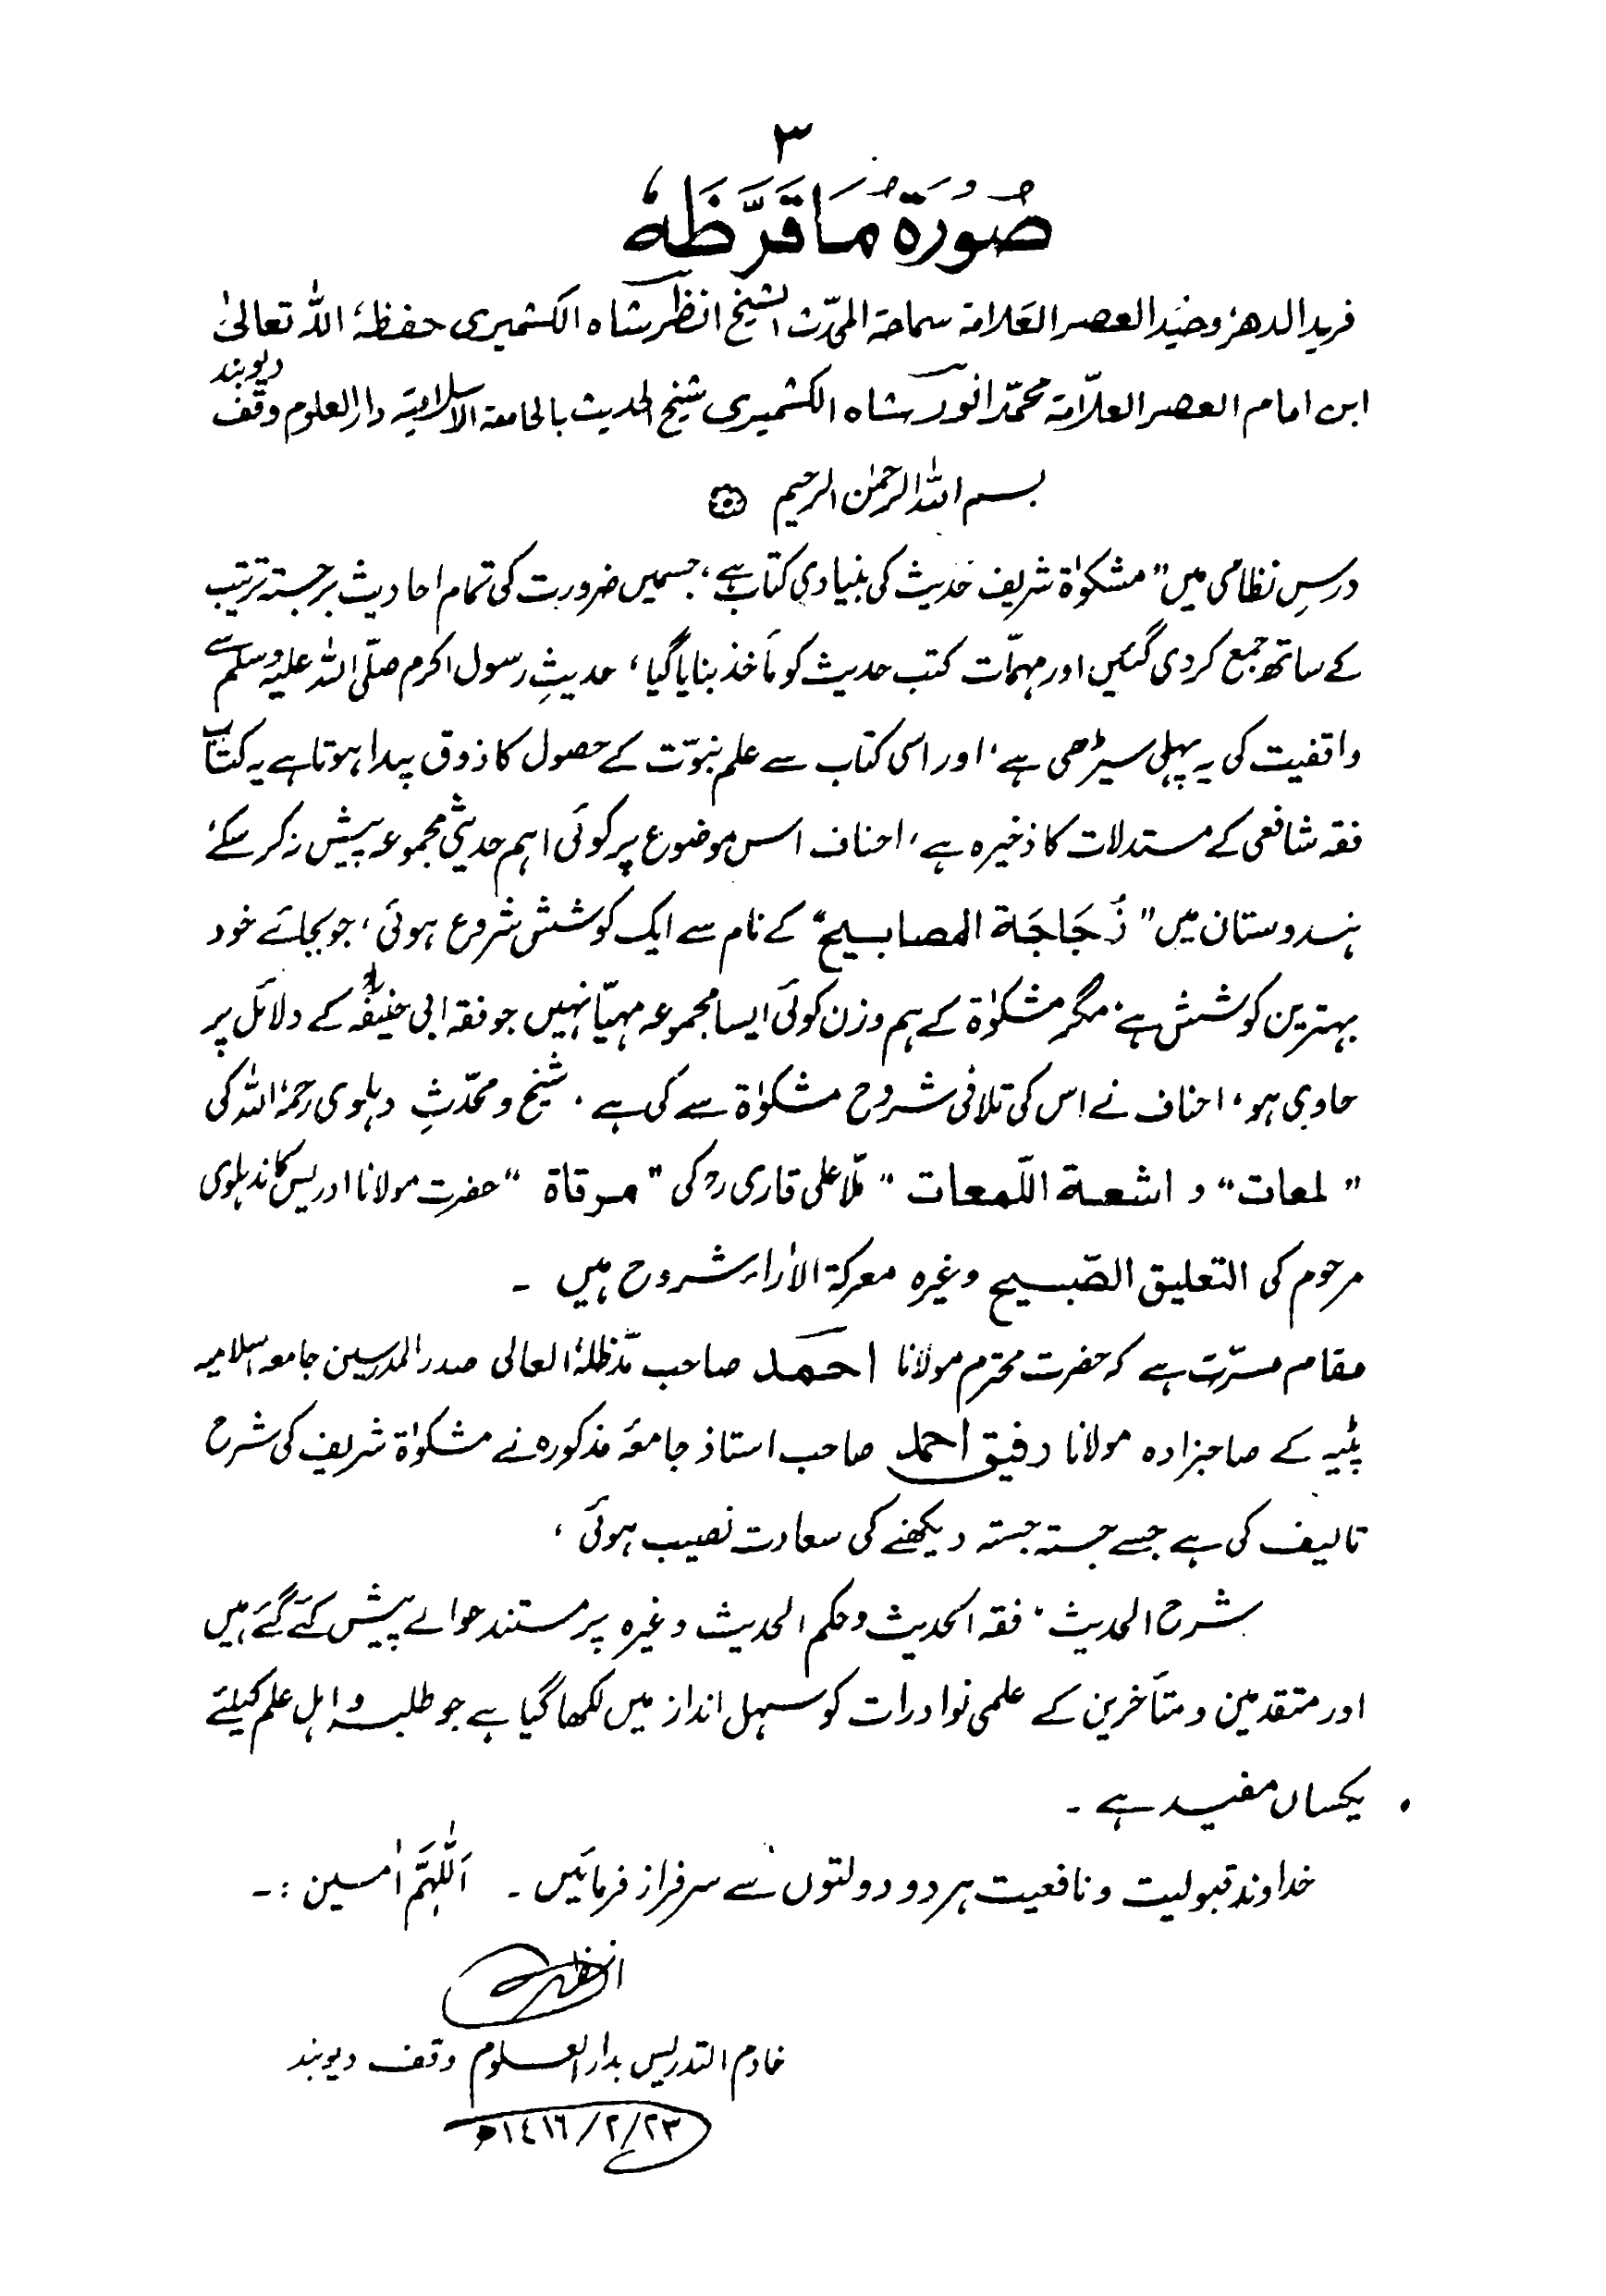 ۳
صُورَةُ مَا قَرَّظَهٗ
فرید الدهر وحید العصر العلامة سماحة المحدّث الشیخ انظر شاہ الکشمیری حفظہٗ اللہ تعالیٰ
ابن امام العصر العلاّمة محمّد انور شاہ الکشمیری شیخ الحدیث بالجامعة الاسلامیّة دار العلوم وقف دیوبند
بسم اللہ الرحمٰن الرحیم
درسِ نظامی میں ”مشکوٰۃ شریف حدیث کی بنیادی کتاب ہے، جسمیں ضرورت کی تمام احادیث برجستہ ترتیب
کے ساتھ جمع کر دی گئیں اور مہمّات کتب حدیث کو مأخذ بنایا گیا، حدیثِ رسول اکرم صلّی اللہ علیہ وسلم سے
واقفیت کی یہ پہلی سیڑھی ہے، اور اسی کتاب سے علم نبوّت کے حصول کا ذوق پیدا ہوتا ہے یہ کتاب
فقہ شافعی کے مستدلات کا ذخیرہ ہے، احناف اس موضوع پر کوئی اہم حدیثی مجموعہ پیش نہ کر سکے،
ہندوستان میں ”زُجَاجَة المصابیح“ کے نام سے ایک کوشش شروع ہوئی، جو بجائے خود
بہترین کوشش ہے، مگر مشکوٰۃ کے ہم وزن کوئی ایسا مجموعہ مہیّا نہیں جو فقہ ابی حنیفہؒ کے دلائل پر
حاوی ہو، احناف نے اس کی تلافی شروح مشکوٰۃ سے کی ہے، شیخ و محدّثِ دہلوی رحمہُ اللہ کی
”لمعات“ و اشعة اللّمعات“ ملّا علی قاریؒ کی ”مرقاة“ حضرت مولانا ادریس کاندہلوی
مرحوم کی التعلیق الصّبیح وغیرہ معرکة الآراء شروح ہیں ۔
مقام مسرّت ہے کہ حضرت محترم مولانا احمد صاحب مدّظلہُ العالی صدر المدرسین جامعہ اسلامیہ
پٹیہ کے صاحبزادہ مولانا رفیق احمد صاحب استاذ جامعۂ مذکورہ نے مشکوٰۃ شریف کی شرح
تالیف کی ہے جسے جستہ جستہ دیکھنے کی سعادت نصیب ہوئی،
شرح الحدیث، فقہ الحدیث و حکم الحدیث وغیرہ پر مستند حوالے پیش کئے گئے ہیں
اور متقدمین و متأخرین کے علمی نوادرات کو سہل انداز میں لکھا گیا ہے جو طلبہ و اہل علم کیلئے
یکساں مفید ہے ۔
خداوند قبولیت و نافعیت ہر دو دولتوں سے سرفراز فرمائیں ۔ اَللّٰہُمَّ اٰمین :۔
انظر
خادم التدریس بدار العلوم وقف دیوبند
۲۳/۲/۱٤۱٦ھ